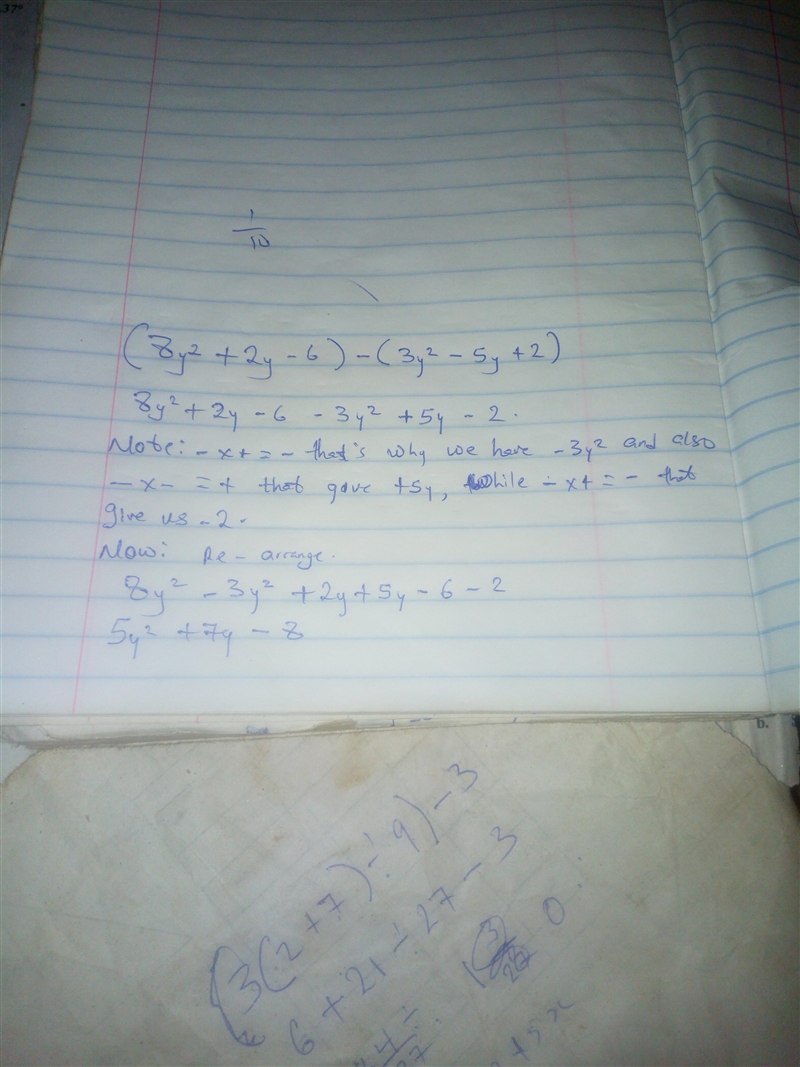 37°
1
10
(8y² + 2y - 6) - (3y² - 5y + 2)
8y² + 2y - 6 - 3y² + 5y - 2.
Note: - x + = - that's why we have - 3y² and also
- x - = + that gave +5y, while - x + = - that
give us - 2.
Now: Re - arrange.
8y² - 3y² + 2y + 5y - 6 - 2
5y² + 7y - 8
b.
(3(2+7) ÷ 9) - 3
6 + 21 ÷ 27 - 3
0.
+ 5x